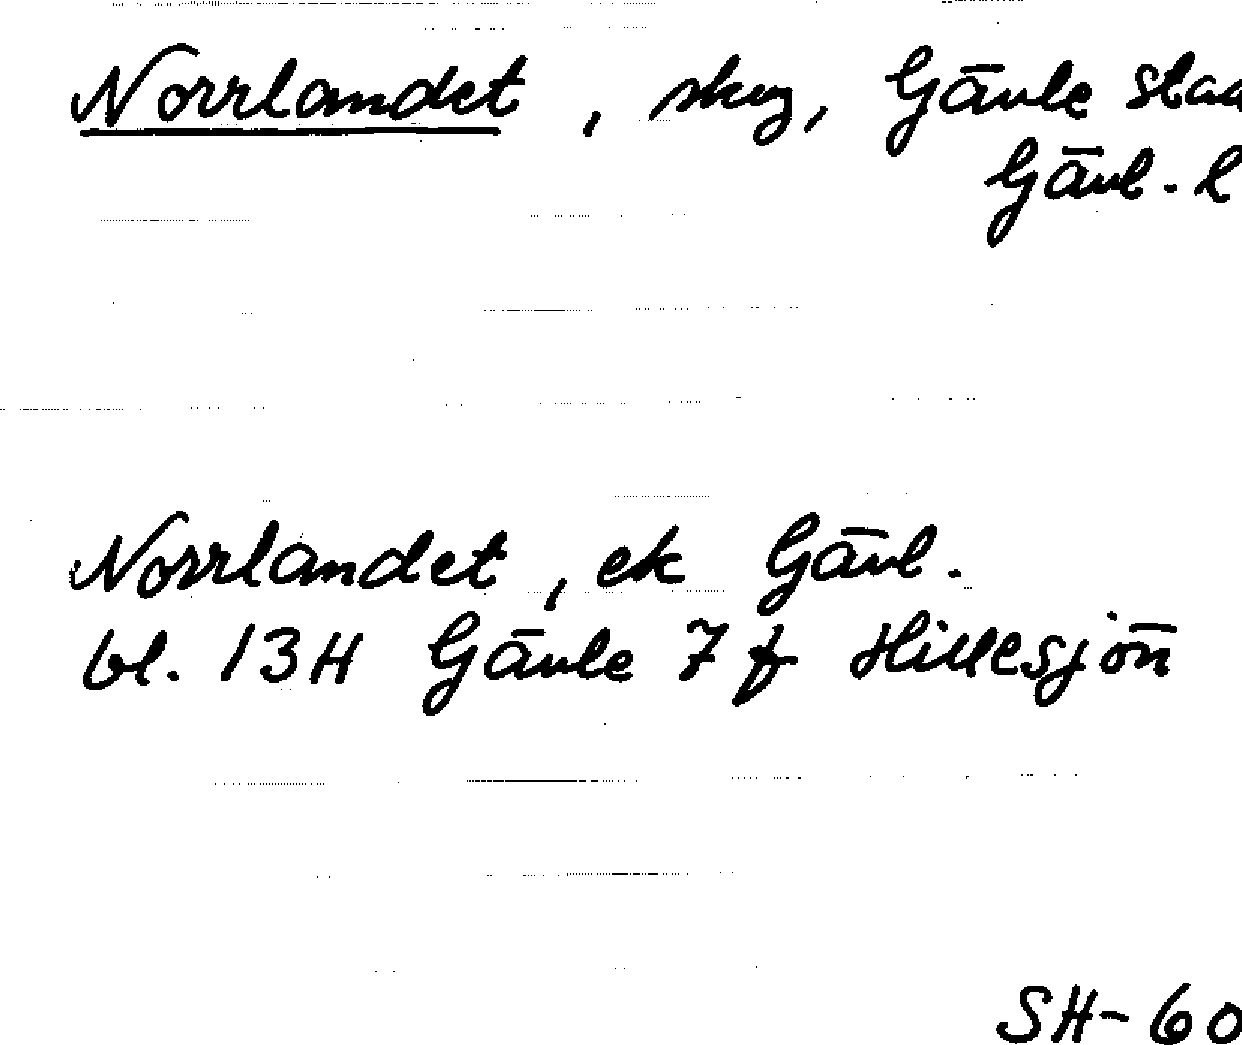 Norrlandet, skog, Gävle stad
Gävl. l
Norrlandet, ek Gävl.
bl. 13H Gävle 7f Hillesjön
SH-60